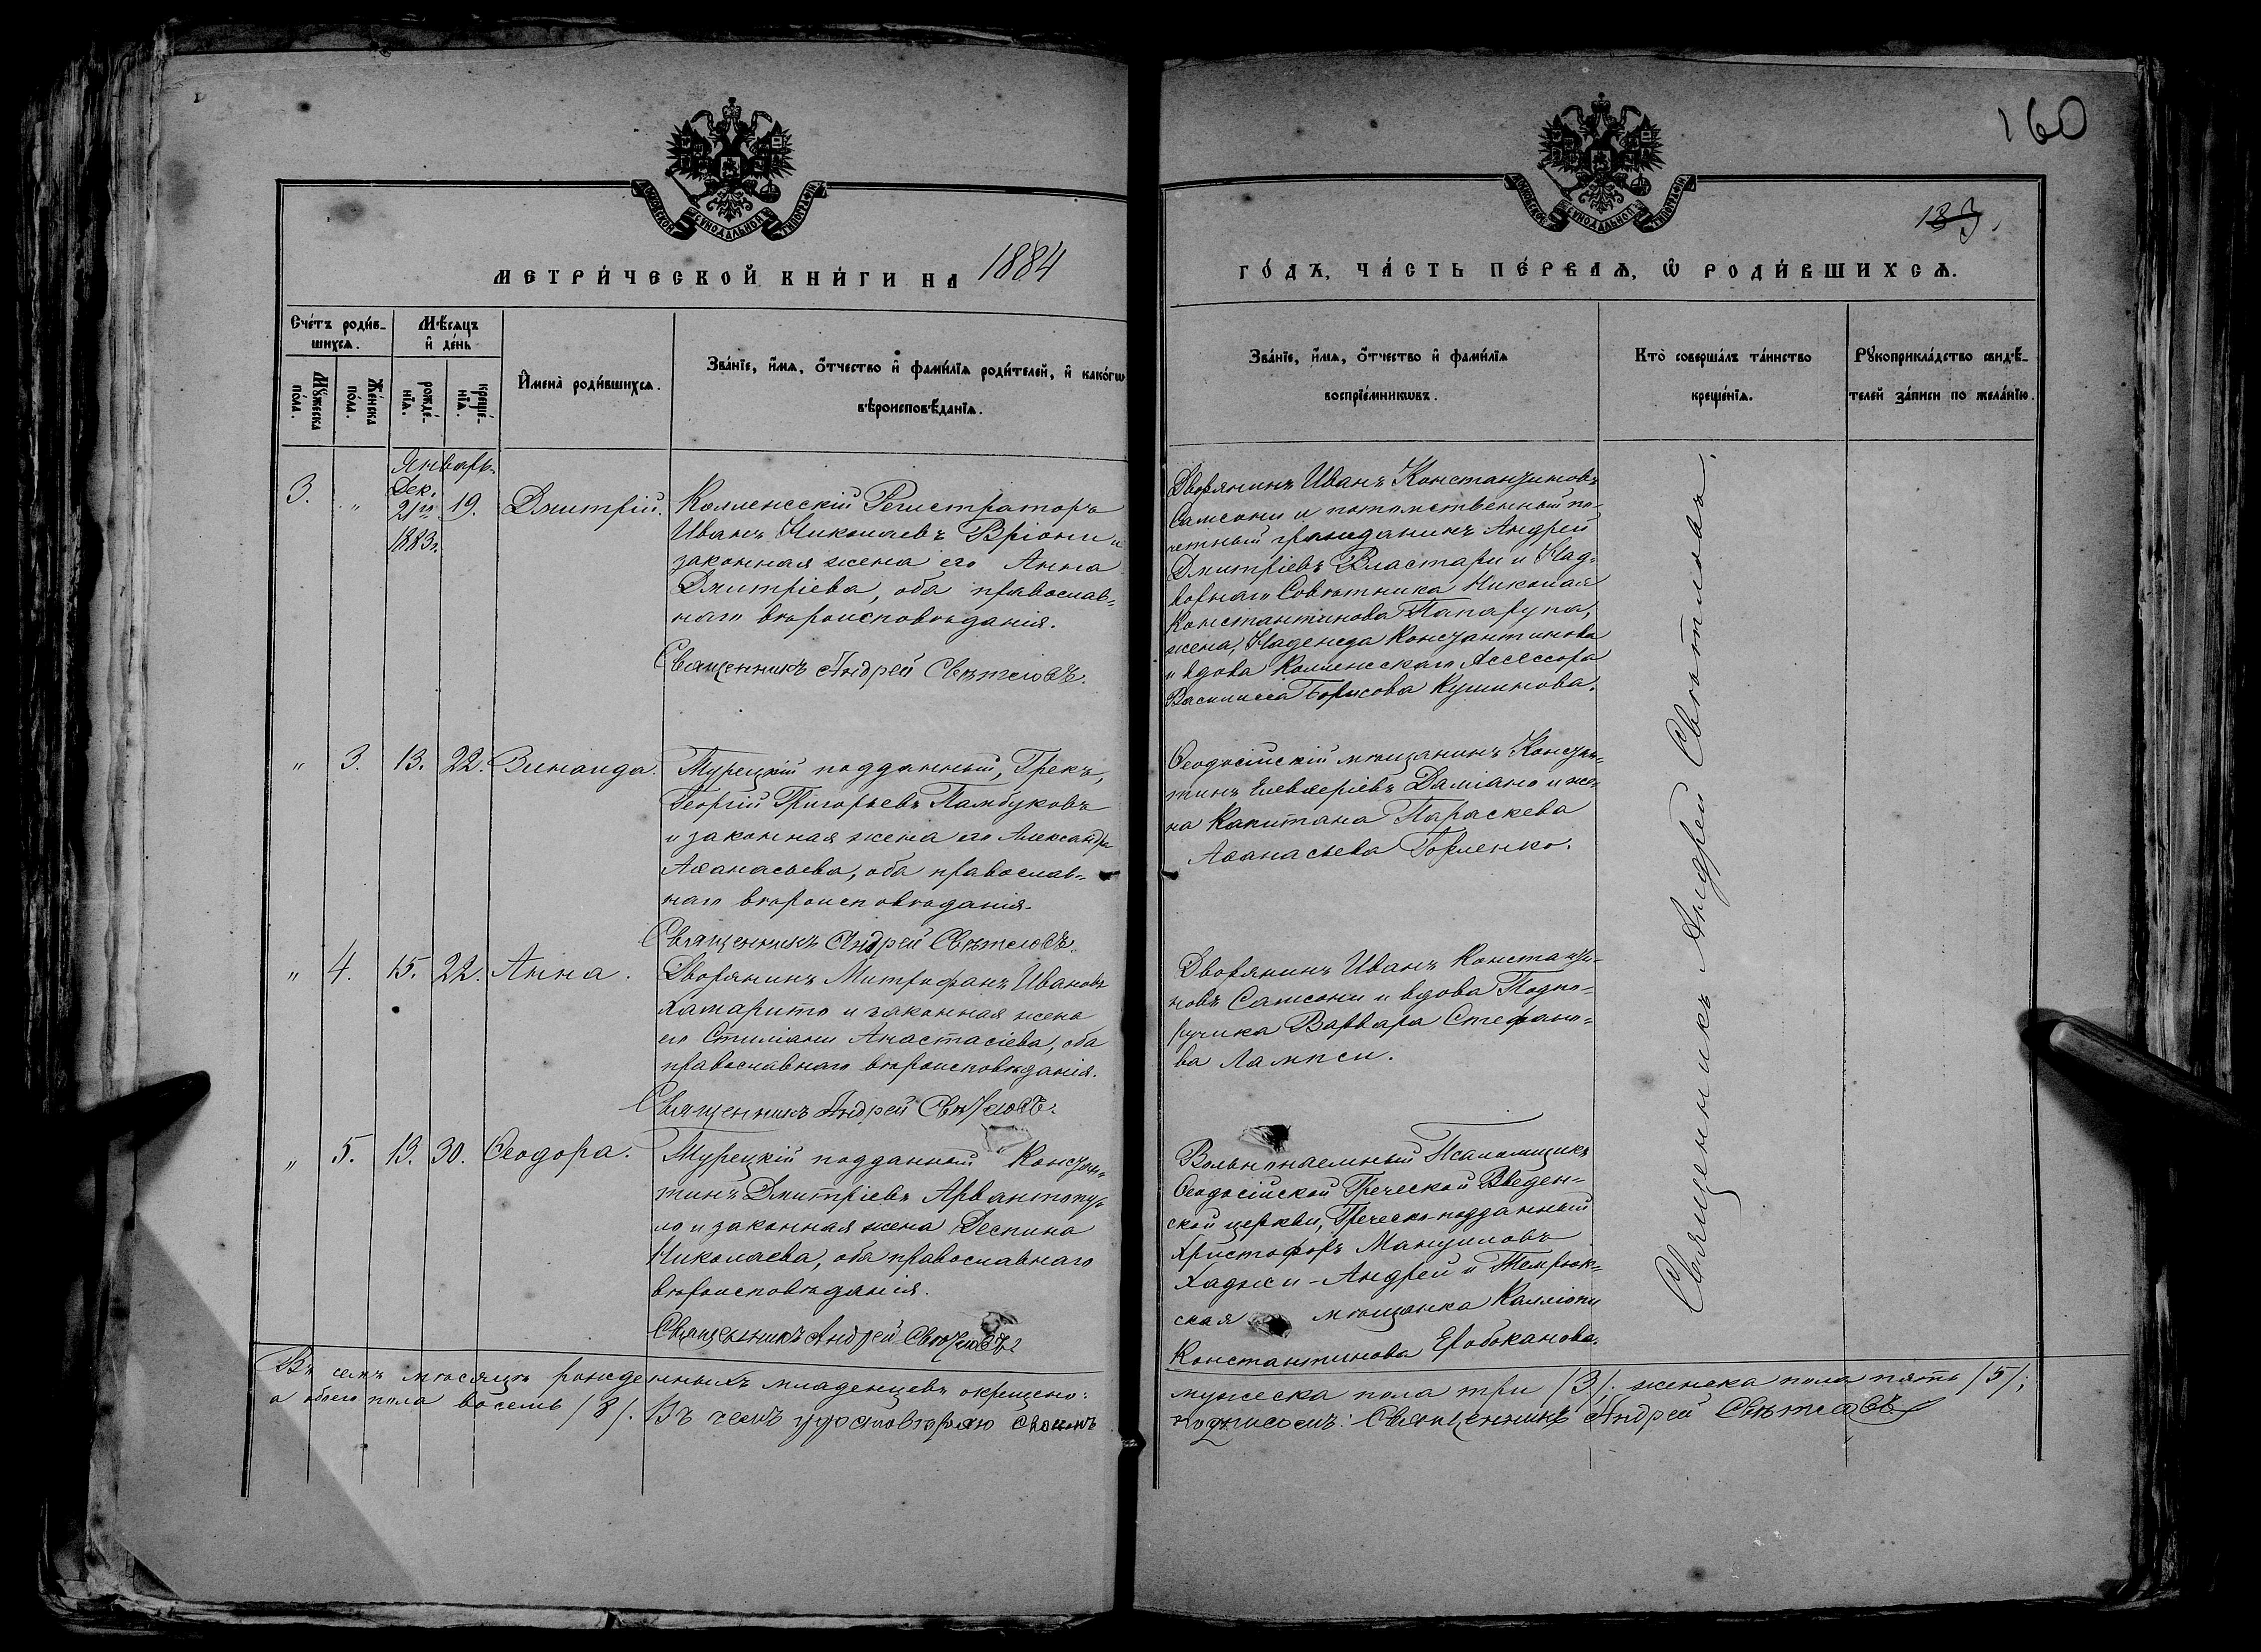 160
183.
МОСКОВСКОЙ СѴНОДАЛЬНОЙ ТИПОГРАФІИ
МОСКОВСКОЙ СѴНОДАЛЬНОЙ ТИПОГРАФІИ
МЕТРИ́ЧЕСКОЙ КНИ́ГИ НА 1884
ГО́ДЪ, ЧА́СТЬ ПЕ́РВАѦ, Ѡ҆ РОДИ́ВШИХСѦ.
Сче́тъ роди́в-
шихсѧ.
Мꙋ́жеска по́ла.
Же́нска по́ла.
Мѣ́сѧцъ
и҆ де́нь
рожде́-
нїѧ.
креще́-
нїѧ.
И҆мена̀ роди́вшихсѧ.
Зва́нїе, и҆́мѧ, ѻ҆́тчество и҆ фами́лїѧ роди́телей, и҆ како́гѡ
вѣроисповѣ́данїѧ.
Зва́нїе, и҆́мѧ, ѻ҆́тчество и҆ фами́лїѧ
воспрїе́мникѡвъ.
Кто̀ соверша́лъ та́инство
креще́нїѧ.
Рꙋкоприкла́дство свидѣ́-
телей за́писи по жела́нїю.
Январь.
3. " Дек. 21го 1883г. 19. Дмитрій.
Коллежскій Регистраторъ
Иванъ Николаевъ Вріони и
законная жена его Анна
Дмитріева, оба православ-
наго вѣроисповѣданія.
Священникъ Андрей Свѣтловъ.
Дворянинъ Иванъ Константиновъ
Самсони и потомственный по-
четный гражданинъ Андрей
Дмитріевъ Властари и Над-
ворнаго Совѣтника Николая
Константинова Папарупа,
жена, Надежда Константинова
и вдова Коллежскаго Ассессора
Василиса Борисова Кушинова.
" 3. 13. 22. Зинаида.
Турецкій подданный, Грекъ,
Георгій Григорьевъ Памбуковъ
и законная жена его Александра
Аѳанасьева, оба православ-
наго вѣроисповѣданія.
Священникъ Андрей Свѣтловъ.
Ѳеодосійскій мѣщанинъ Констан-
тинъ Елевѳеріевъ Даміано и же-
на Капитана Параскева
Аѳанасьева Горленко.
" 4. 15. 22. Анна.
Дворянинъ Митрофанъ Ивановъ
Хамарито и законная жена
его Стиліани Анастасіева, оба
православнаго вѣроисповѣданія.
Священникъ Андрей Свѣтловъ.
Дворянинъ Иванъ Константи-
новъ Самсони и вдова Подпо-
ручика Варвара Стефано-
ва Лампси.
" 5. 13. 30. Ѳеодора.
Турецкій подданный Констан-
тинъ Дмитріевъ Арвантопу-
ло и законная жена Деспина
Николаева, оба православнаго
вѣроисповѣданія.
Священникъ Андрей Свѣтловъ
Вольнонаемный Псаломщикъ
Ѳеодосійской Греческой Введен-
ской церкви, Греческо-подданный
Христофоръ Мануиловъ
Хаджи-Андрей и Темрюк-
ская мѣщанка Калліопи
Константинова Еробоканова.
Священникъ Андрей Свѣтловъ.
Въ семъ мѣсяцѣ рожденныхъ младенцевъ окрещено: мужеска пола три /3/; женска пола пять /5/;
а обоего пола восемь /8/. Въ чемъ удостовѣряю своимъ подписомъ: Священникъ Андрей Свѣтловъ